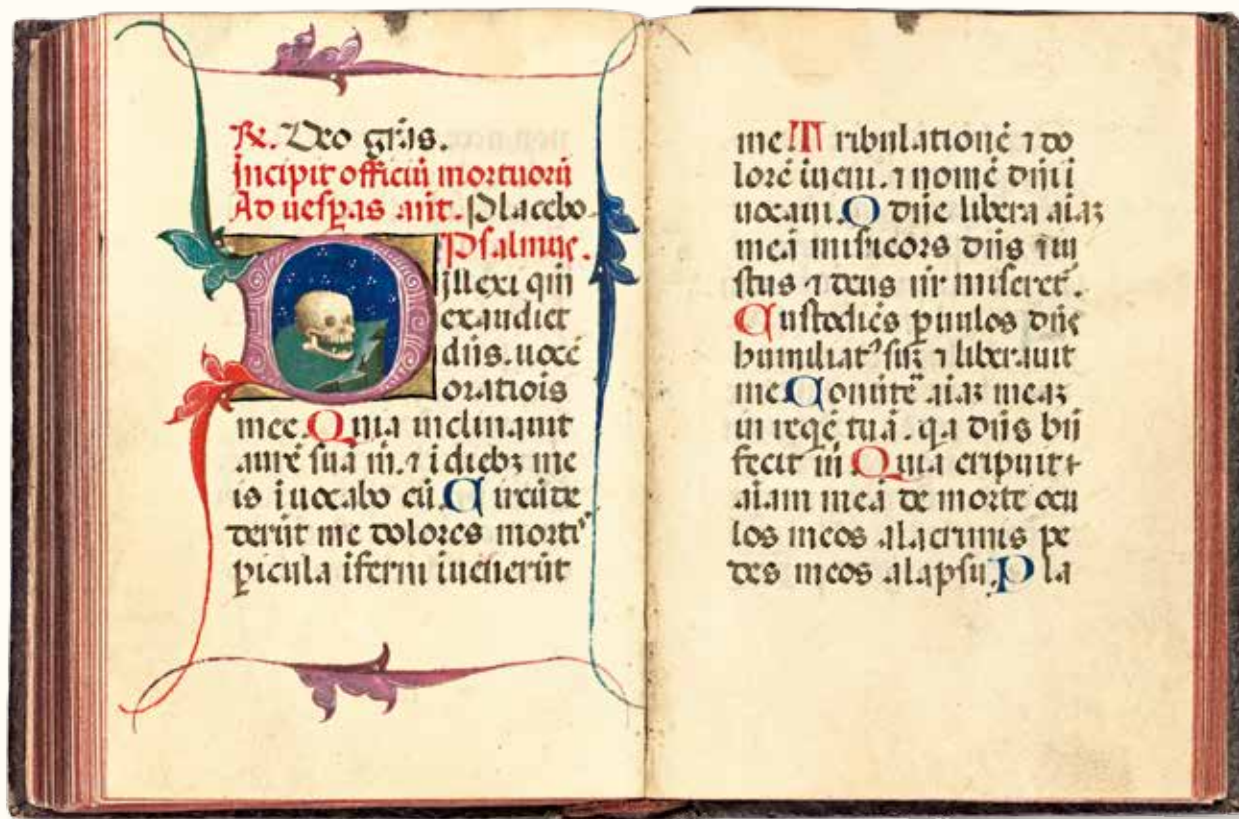 ℟. Deo gr̄as.
Incipit officiū mortuorū
Ad uesꝑas ant̄. Placebo.
Psalmus.
Dilexi qm̄
exaudiet
dn̄s. uocē
oratiōis
mee. Quia inclinauit
aurē suā m̄. ⁊ ī diebꝫ me
is īuocabo eū. Circūde
derūt me dolores mortꝰ
ꝑicula īferni īuenerūt
me Tribulationē ⁊ do
lorē īueni. ⁊ nomē dn̄i ī
uocaui. O dn̄e libera aīaꝫ
meā misīcors dn̄s ⁊ iu
stus ⁊ deus nr̄ miseret̄.
Custodiēs ꝑuulos dn̄s
humiliatꝰ sū ⁊ liberauit
me Conūte aīaꝫ meaꝫ
in reqē tuā. qa dn̄s bn̄
fecit m̄ Quia eripuit
aīam meā de morte ocu
los meos a lacrimis pe
des meos a lapsu. Pla